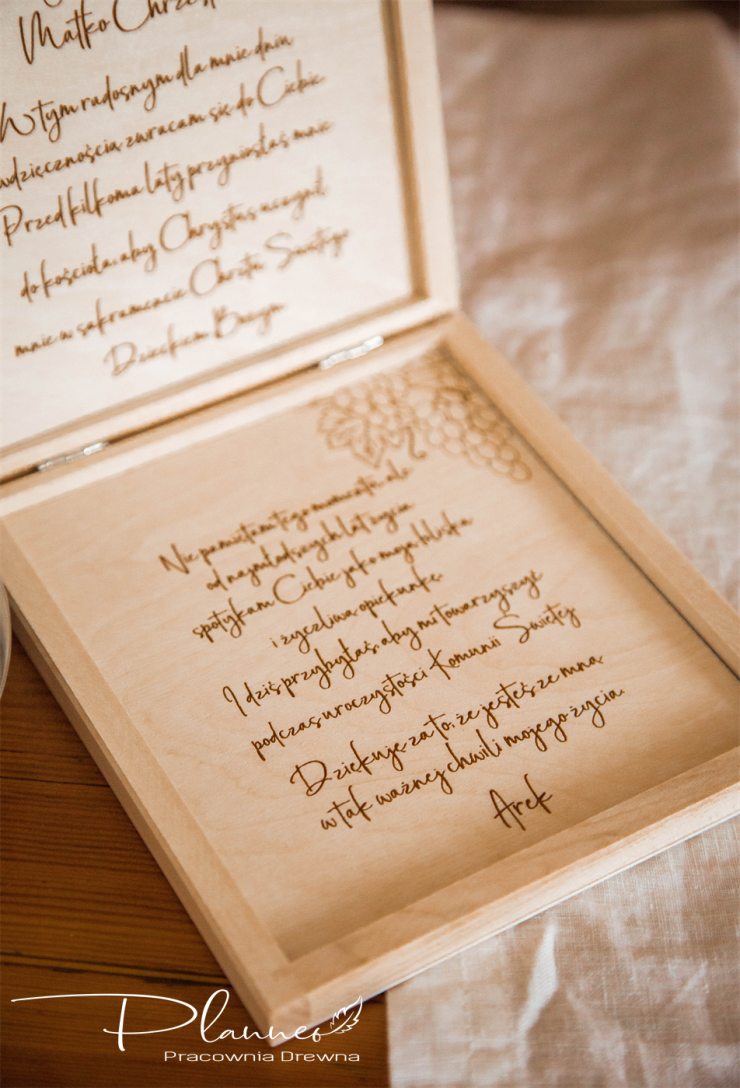 Matko Chrzest
W tym radosnym dla mnie dniu
wdzięcznością zwracam się do Ciebie
Przed kilkoma laty przyniosłaś mnie
do kościoła, aby Chrystus uczynił
mnie w sakramencie Chrztu Świętego
Dzieckiem Bożym
Nie pamiętam tego momentu, ale
od najmłodszych lat życia
spotykam Ciebie jako moją bliską
i życzliwą opiekunkę.
I dziś przybyłaś, aby mi towarzyszyć
podczas uroczystości Komunii Świętej
Dziękuję za to, że jesteś ze mną
w tak ważnej chwili mojego życia.
Arek
Planneo
Pracownia Drewna